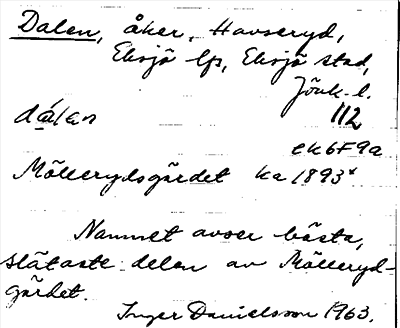 Dalen, åker, Havseryd,
Eksjö lfs, Eksjö stad,
Jönk. l.
dá̤lən 112
ek 6F9a
Möllerydsgärdet ka 1893
Namnet avser bästa,
slätaste delen av Mölleryd-
gärdet.
Inger Danielsson 1963.